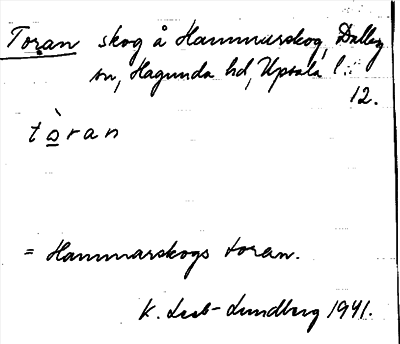 Toran skog å Hammarskog, Dalby
sn, Hagunda hd, Upsala l.
12.
tòran
= Hammarskogs toran.
K. Leeb-Lundberg 1941.